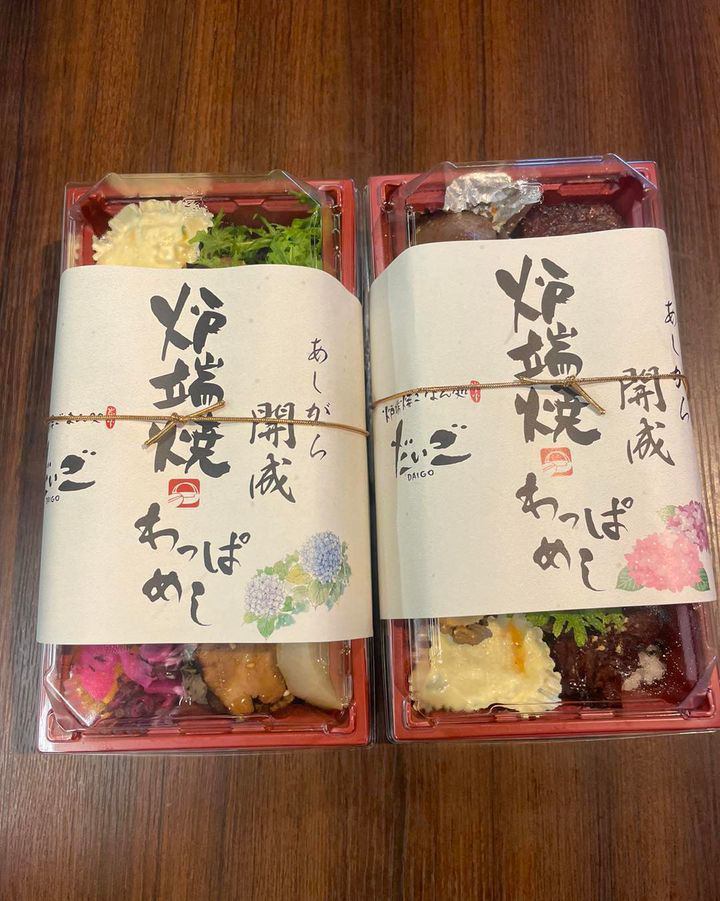 炉端焼
あしがら
開成
だいご
DAIGO
わっぱ
めし
炉端焼
あしがら
開成
だいご
DAIGO
わっぱ
めし